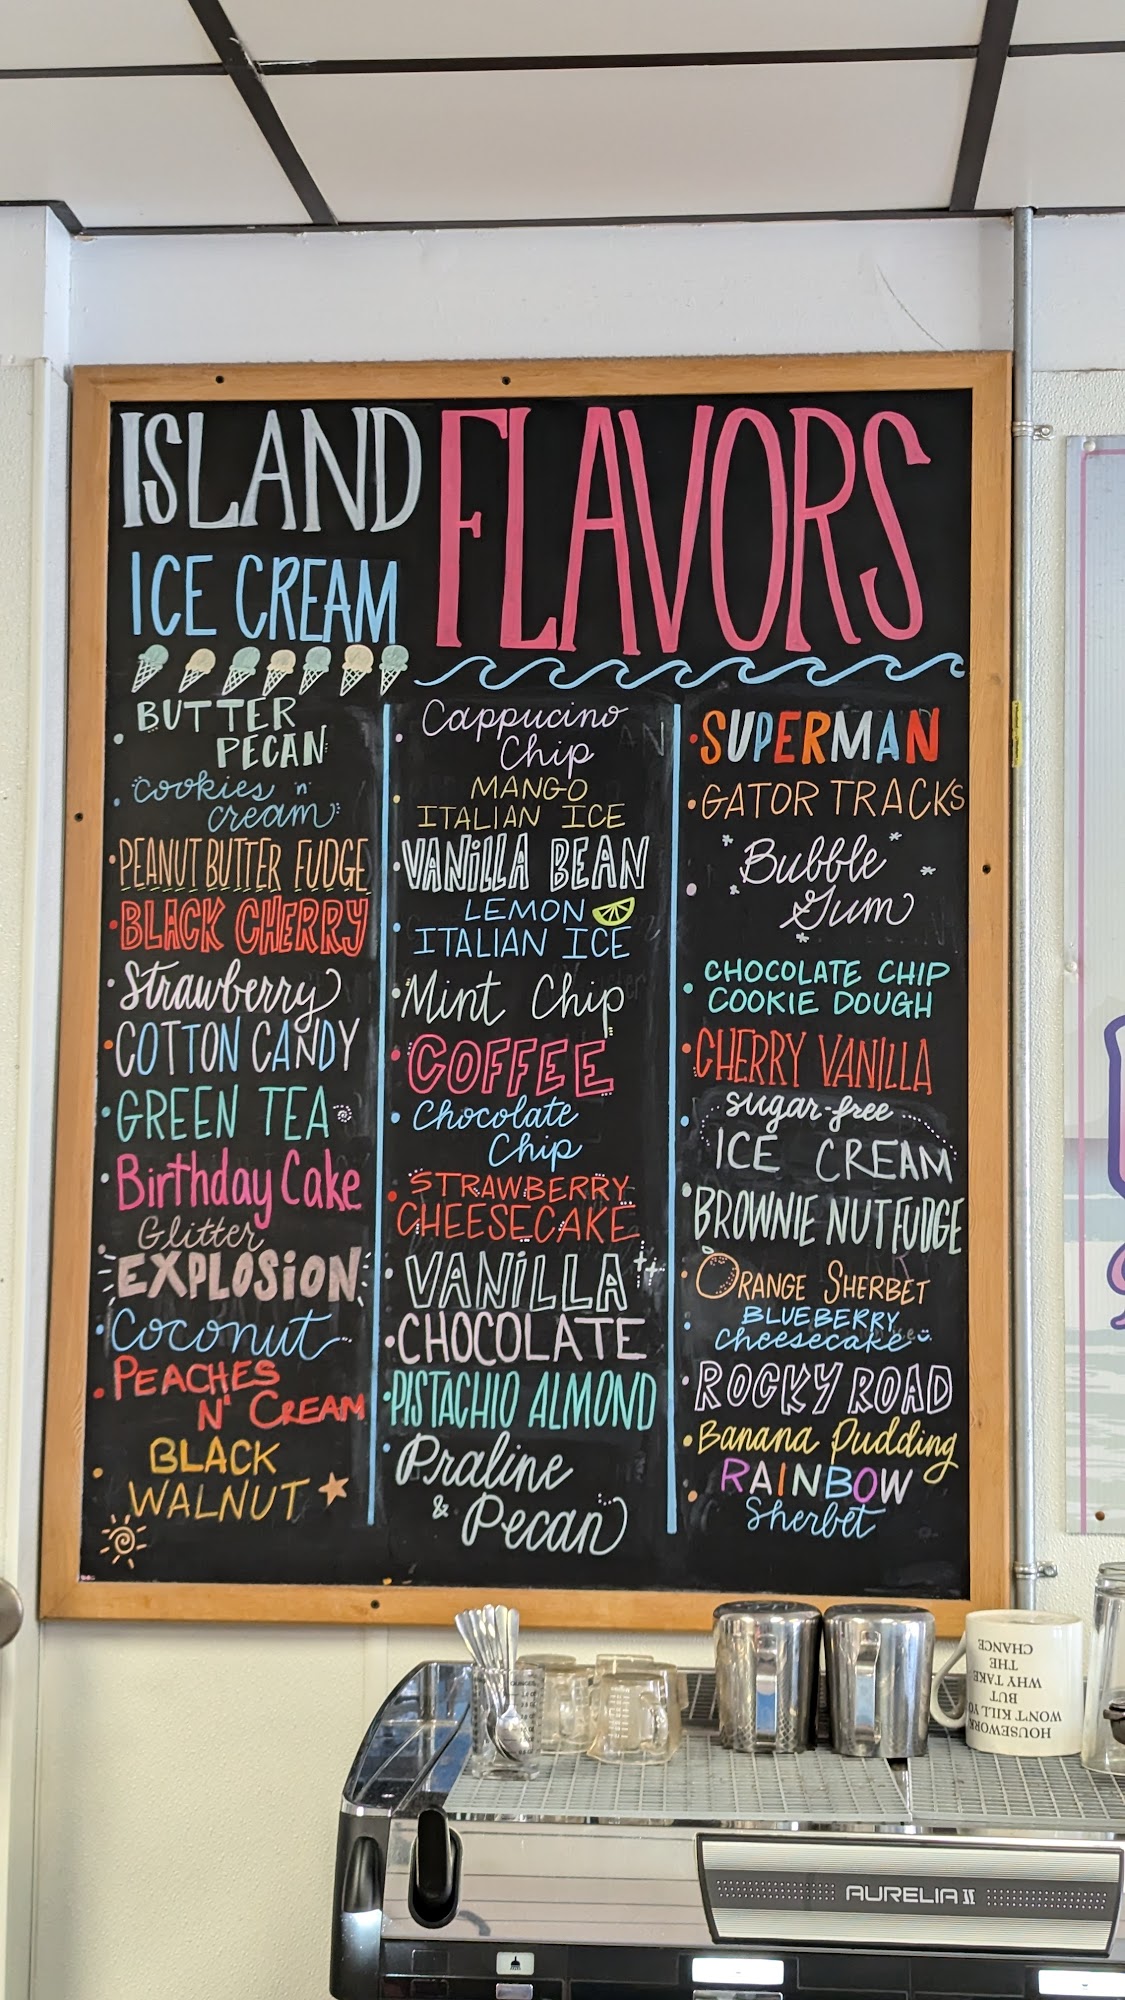 ISLAND FLAVORS
ICE CREAM
BUTTER
PECAN
cookies 'n'
cream
PEANUT BUTTER FUDGE
BLACK CHERRY
Strawberry
COTTON CANDY
GREEN TEA
Birthday Cake
Glitter
EXPLOSION
Coconut
PEACHES
N' CREAM
BLACK
WALNUT
Cappucino
Chip
MANGO
ITALIAN ICE
VANILLA BEAN
LEMON
ITALIAN ICE
Mint Chip
COFFEE
Chocolate
Chip
STRAWBERRY
CHEESECAKE
VANILLA
CHOCOLATE
PISTACHIO ALMOND
Praline
& Pecan
SUPERMAN
GATOR TRACKS
Bubble
Gum
CHOCOLATE CHIP
COOKIE DOUGH
CHERRY VANILLA
sugar-free
ICE CREAM
BROWNIE NUT FUDGE
ORANGE SHERBET
BLUEBERRY
cheesecake
ROCKY ROAD
Banana Pudding
RAINBOW
Sherbet
HOUSEWORK
WON'T KILL YOU
BUT
WHY TAKE
THE
CHANCE
AURELIA II